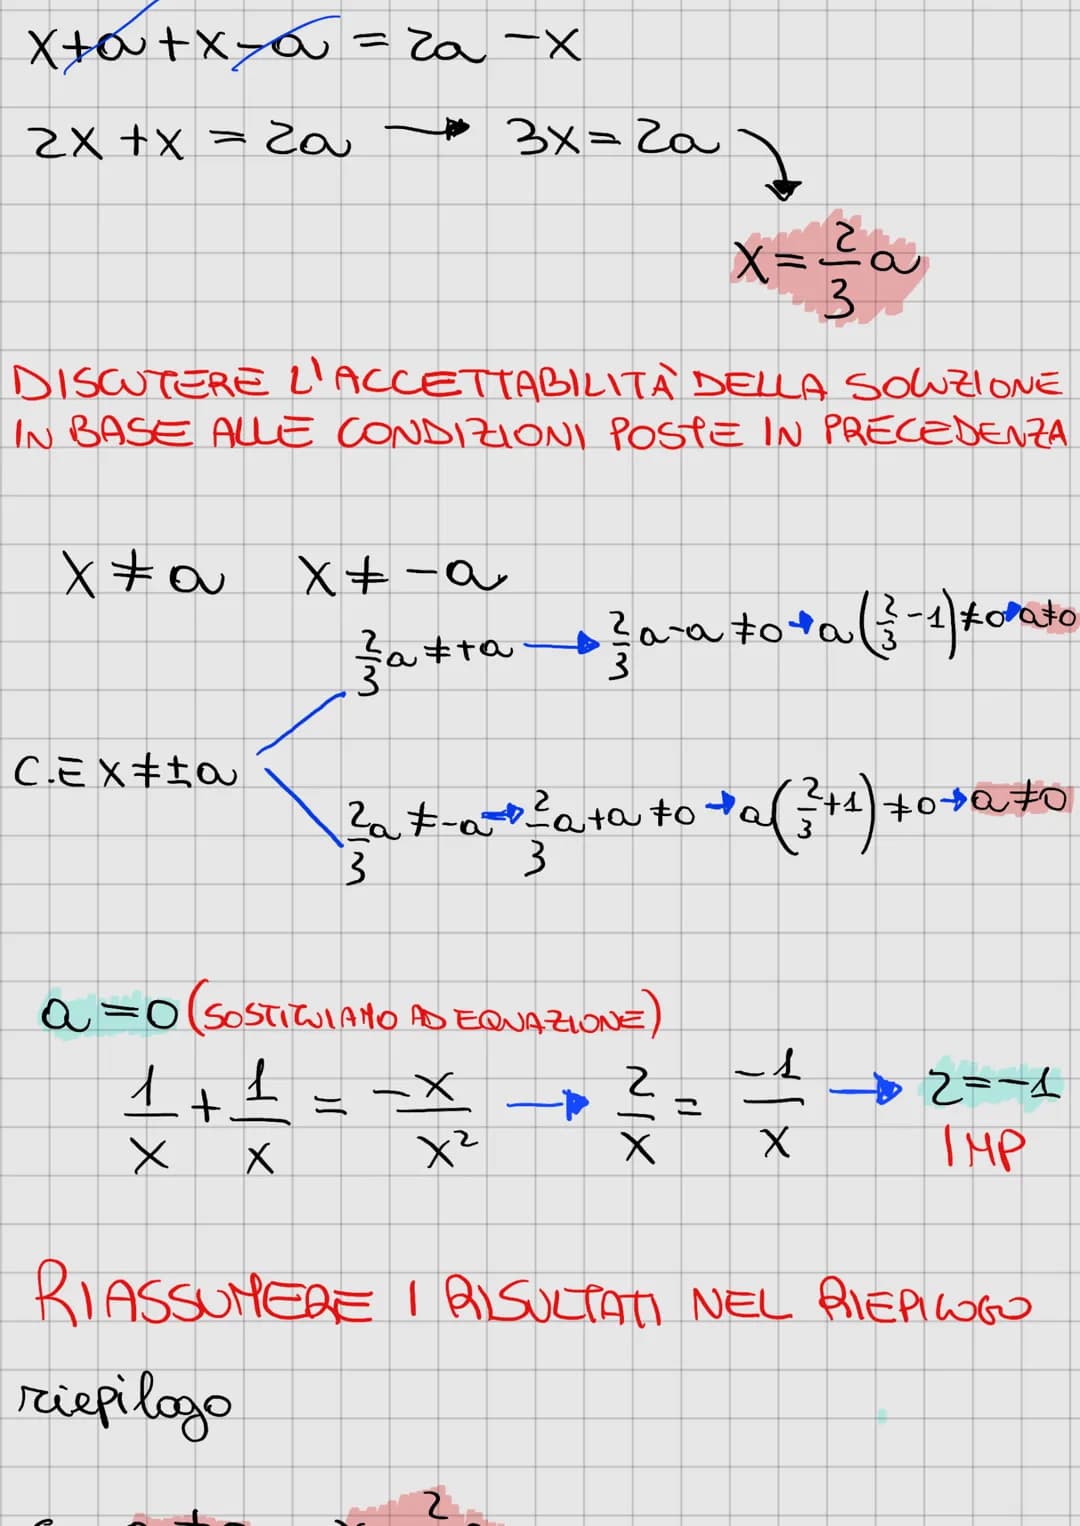 x+a+x-a = 2a -x
2x +x = 2a → 3x = 2a
x = 2/3 a
DISCUTERE L'ACCETTABILITÀ DELLA SOLUZIONE
IN BASE ALLE CONDIZIONI POSTE IN PRECEDENZA
x ≠ a x ≠ -a
2/3 a ≠ +a → 2/3 a-a ≠ 0 → a(2/3 -1) ≠ 0 → a≠0
C.E x ≠ ±a
2/3 a ≠ -a → 2/3 a+a ≠ 0 → a(2/3 +1) ≠ 0 → a≠0
a = 0 (SOSTITUIAMO AD EQUAZIONE)
1/x + 1/x = -x/x² → 2/x = -1/x → 2=-1
IMP
RIASSUMERE I RISULTATI NEL RIEPILOGO
riepilogo
2